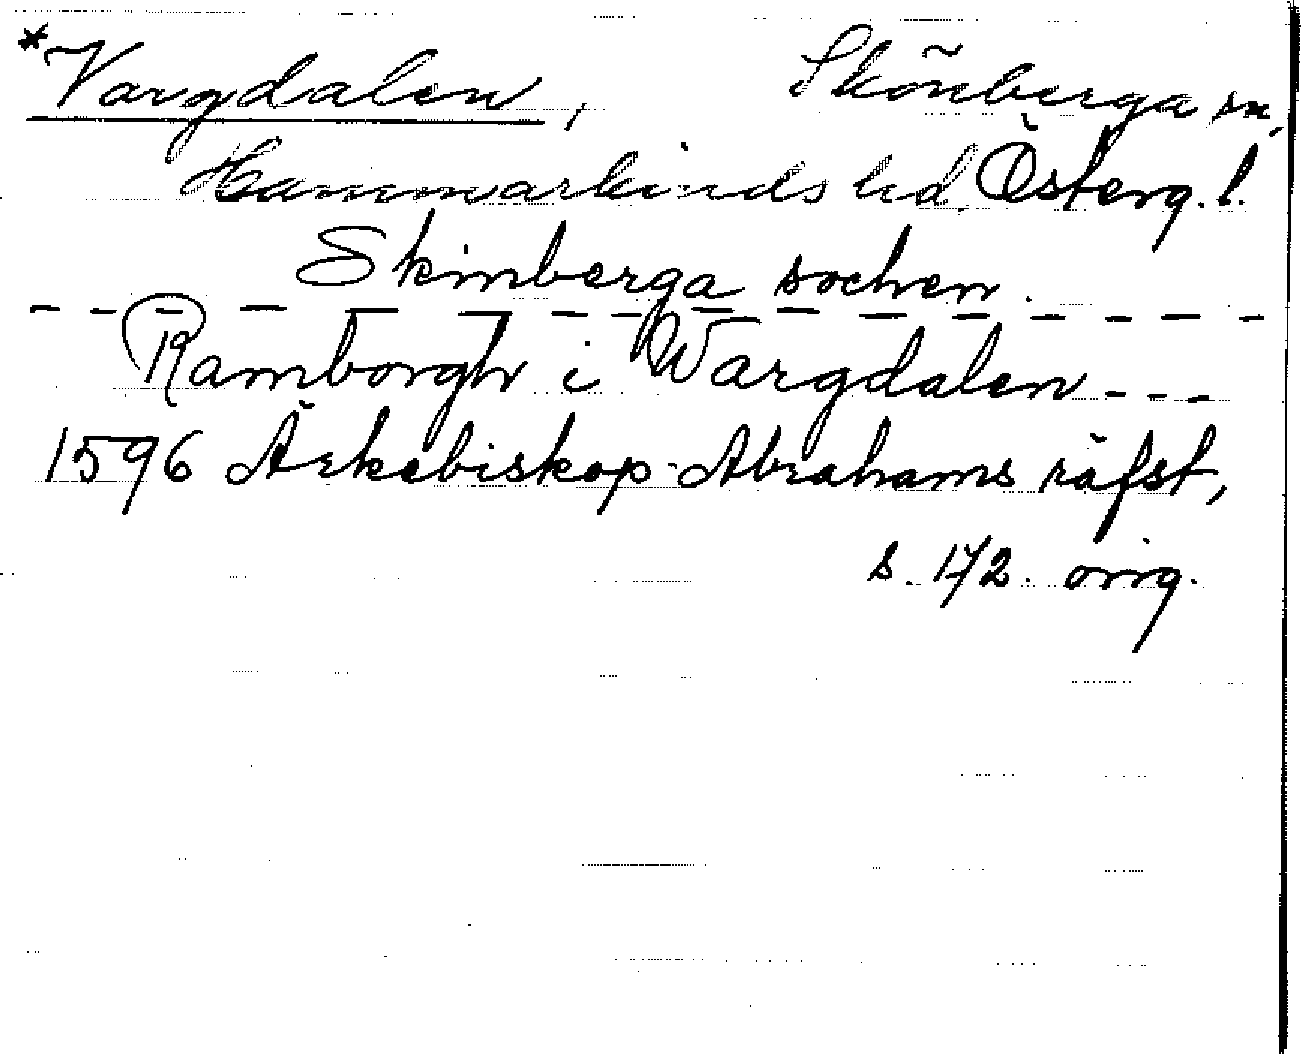 *Vargdalen, Skönberga sn,
Hammarkinds hd, Österg. l.
Skinberga sochen.
Ramborgh i Wargdalen - - -
1596 Ärkebiskop Abrahams räfst,
s. 172. orig.